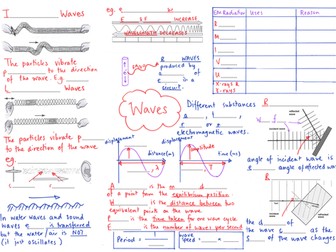 T_____ Waves
The particles vibrate
to the direction
of the wave. E.g.
L_____ Waves
The particles vibrate p_____
to the direction of the wave.
eg.
In water waves and sound
waves e_____ is transferred
but the water/air is NOT
(it just oscillates)
eg.
INCREASE
WAVELENGTH DECREASES
R_____ WAVES
produced by
e_____
in a
circuit
Waves
displacement
distance (m)
displacement
amplitude
time (s)
A_____ is the m_____ d_____
of a point from the equilibrium position
W_____ is the distance between two
equivalent points on the wave.
P_____ is the time taken for one wave cycle
F_____ is the number of waves per second
Period =
wave
speed =
EM Radiation
Uses
Reason
R
M
I
V
U
X-rays &
Different substances
a_____
r_____ or
electromagnetic waves.
R
angle of incident wave is
R
the d_____ of
the wave
as the
S_____ of the wave changes